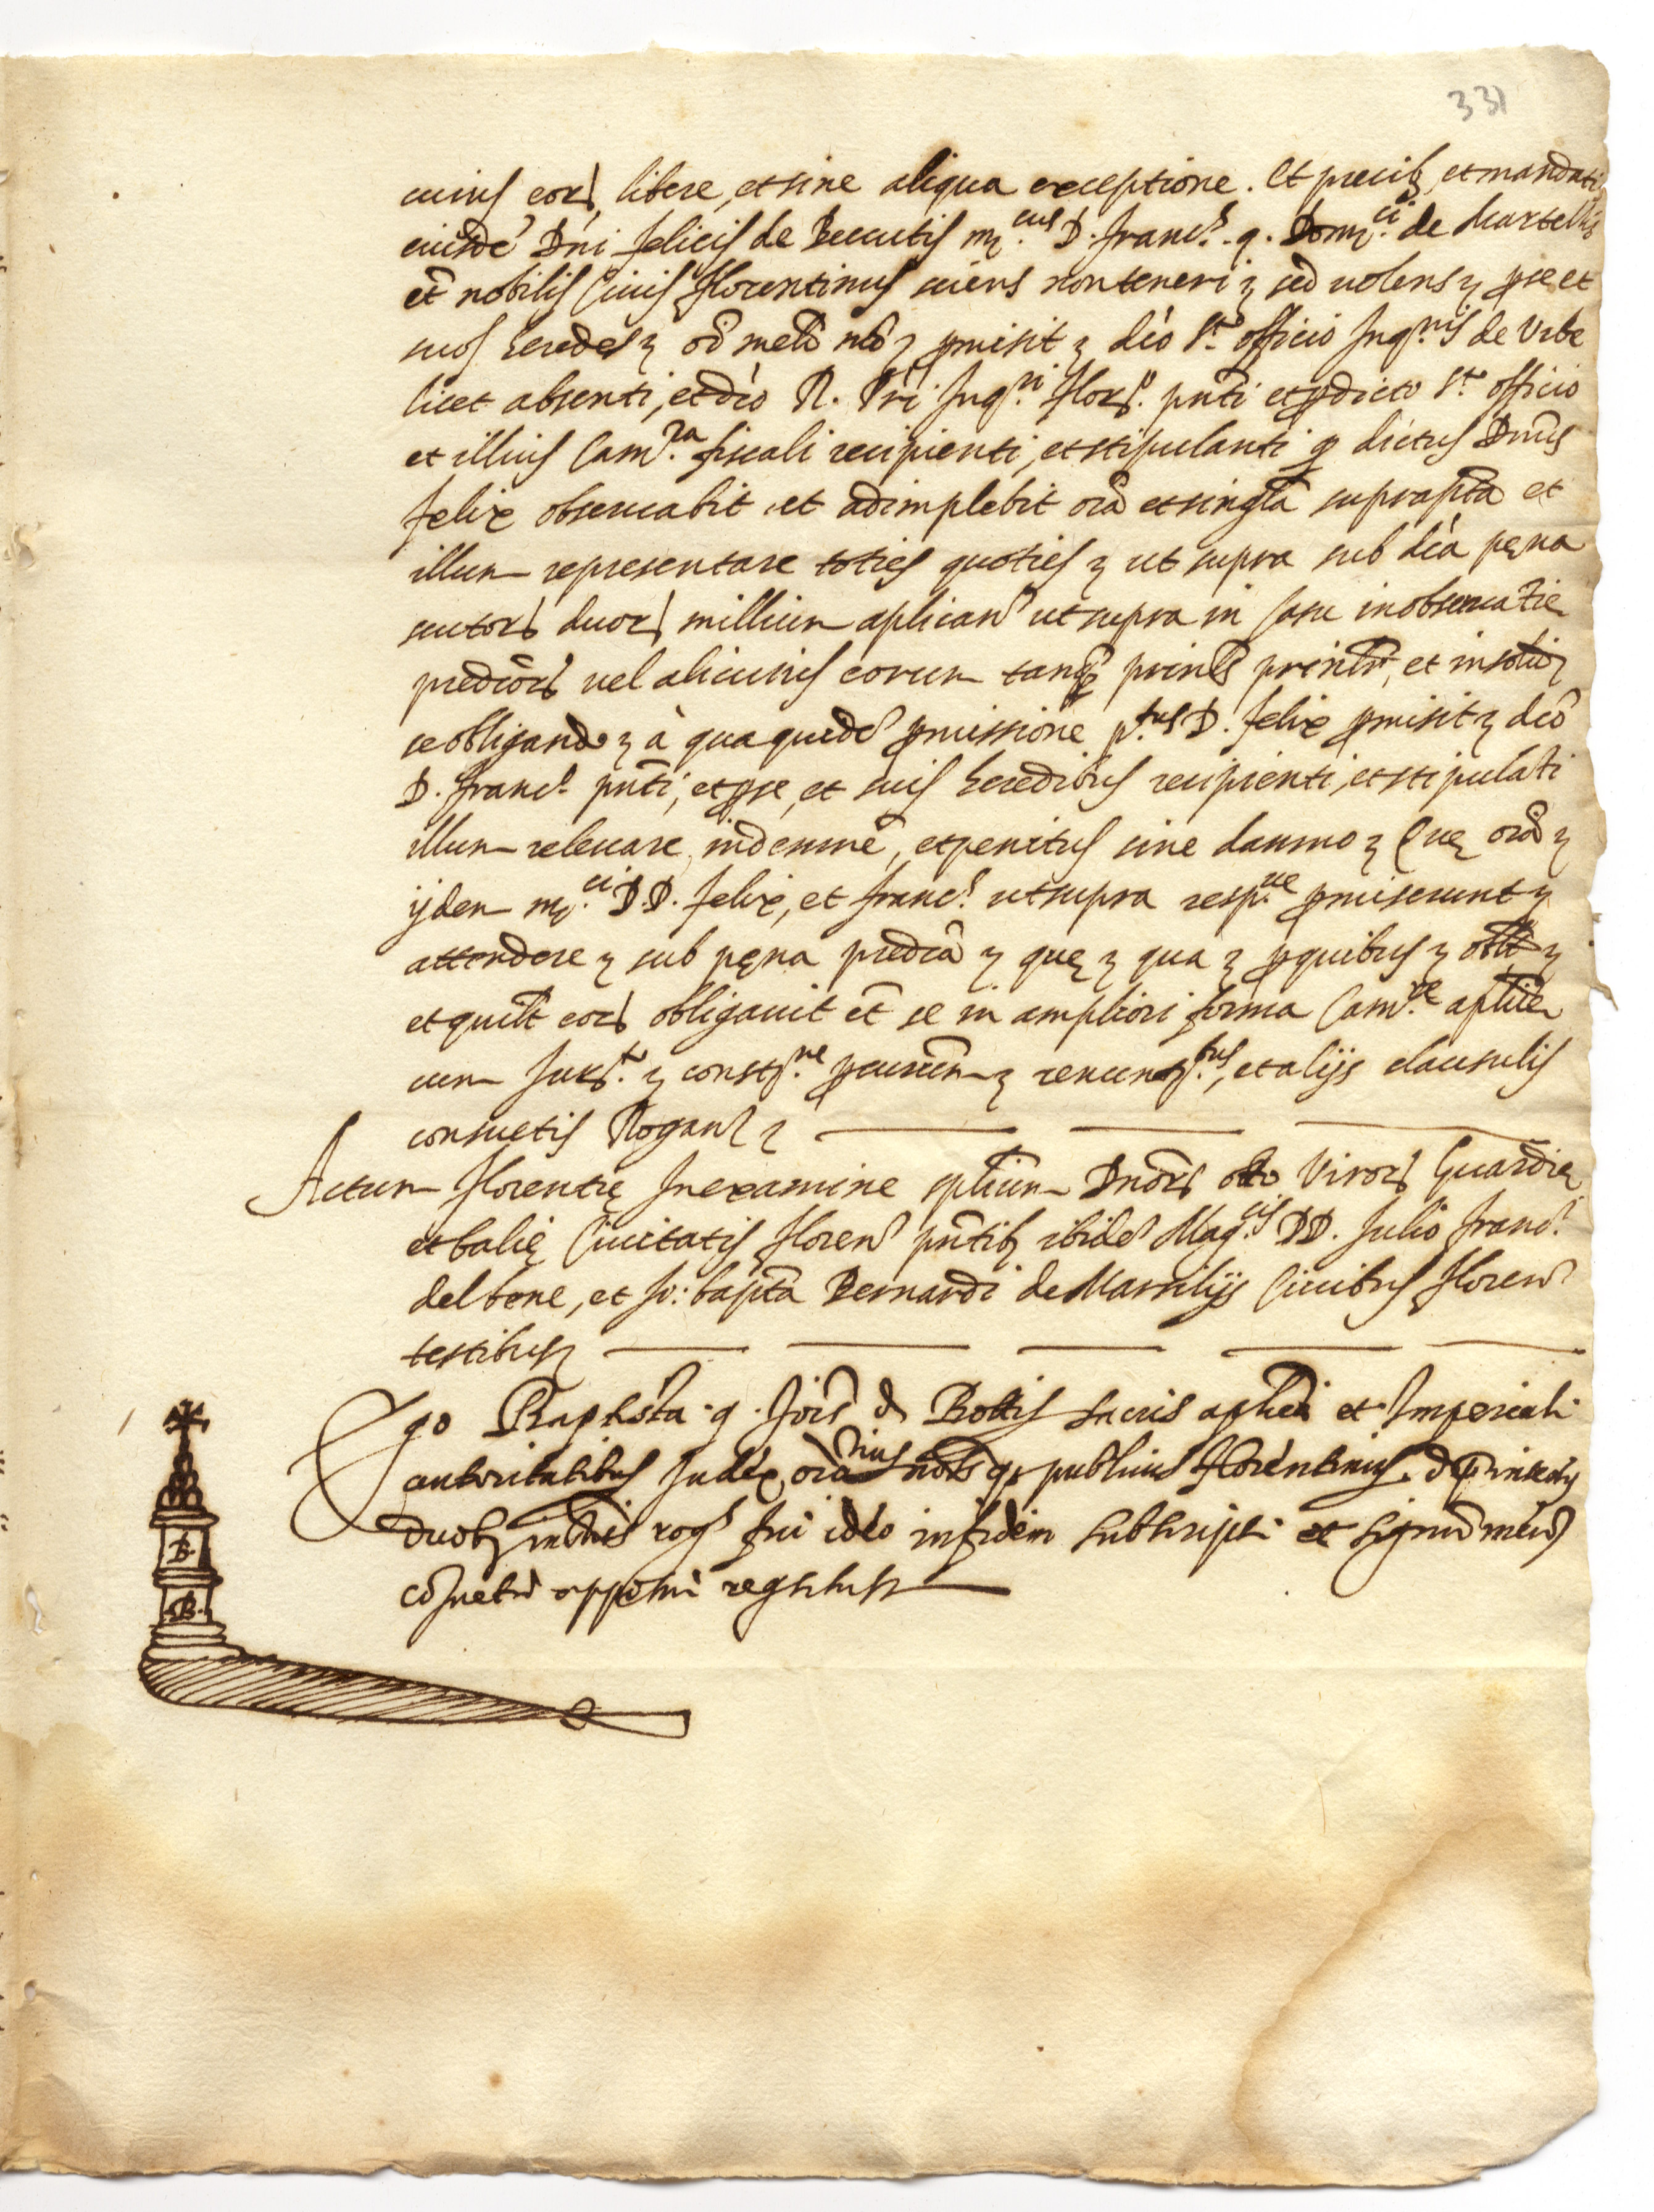 331
cuius eor, libere, et sine aliqua exceptione. Et precib, et mandati
eiusdē Dn̄i felicis de Beccutis m.cus D. franc.s q. Dom.ci de Martellis
et̄ nobilis Ciuis florentinus sciens non teneri ꝫ sed uolens ꝫ ꝑ se et
suos heredes ꝫ oī melō mōꝫ ꝓmisit ꝫ dc̄o S.to officio Inq.nis de Vrbe
licet absenti, et dc̄o R. Pr̄i Inq.ri flor. pn̄ti et ꝓ dicto S.to officio
et illius Cam.ra fiscali recipienti, et stipulanti ꝙ dictus Dn̄us
felix obseruabit et adimplebit oīa et singl̄a suprasc̄ta et
illum representare toties quoties ꝫ ut supra sub dc̄a pęna
scutor duor millium aplican̄ ut supra in Casu inobseruatīe
predc̄or uel alicuius eorum tanqꝫ prinls prinlr, et insolidꝫ
se obligando ꝫ à qua quidē ꝓmissione p.tus D. felix ꝓmisit ꝫ dc̄o
D. franc.o pn̄ti, et ꝓ se, et suis heredibus recipienti, et stipulāti
illum releuare indemnē, et penitus sine damno ꝫ Quę oīa ꝫ
ijdem m.ci D.D. felix, et franc.s ut supra resp.ue ꝓmiserunt ꝫ
attendere ꝫ sub pęna predc̄a ꝫ quę ꝫ qua ꝫ ꝓ quibus ꝫ obl̄t ꝫ
et quilt eor obligauit et̄ se in ampliori forma Cam.re aplicę
cum Jur.to ꝫ const.ne ꝓcurm̄ ꝫ renun.bus, et alijs clausulis
consuetis Rogan̄ ꝫ
Actum florentię In examine splium Dn̄or octo Viror Guardię
et balię Ciuitatis floren̄ pn̄tib ibidē Mag.cis DD. Julio franc.i
del bene, et Jo: bapta Bernardi de Marsilijs Ciuibus floren̄
testibusꝫ
Ego Baptista q. Jois̄ de Bottis sacris aplica et Imperiali
autoritatibus Judex, ordinarius not.s qꝫ publicus florentinus de p̄inserty
duobꝫ rog.s fui ideo in fidem subscripsi et signū meū
cōsuetū apposui regsitusꝫ
B.
.B.